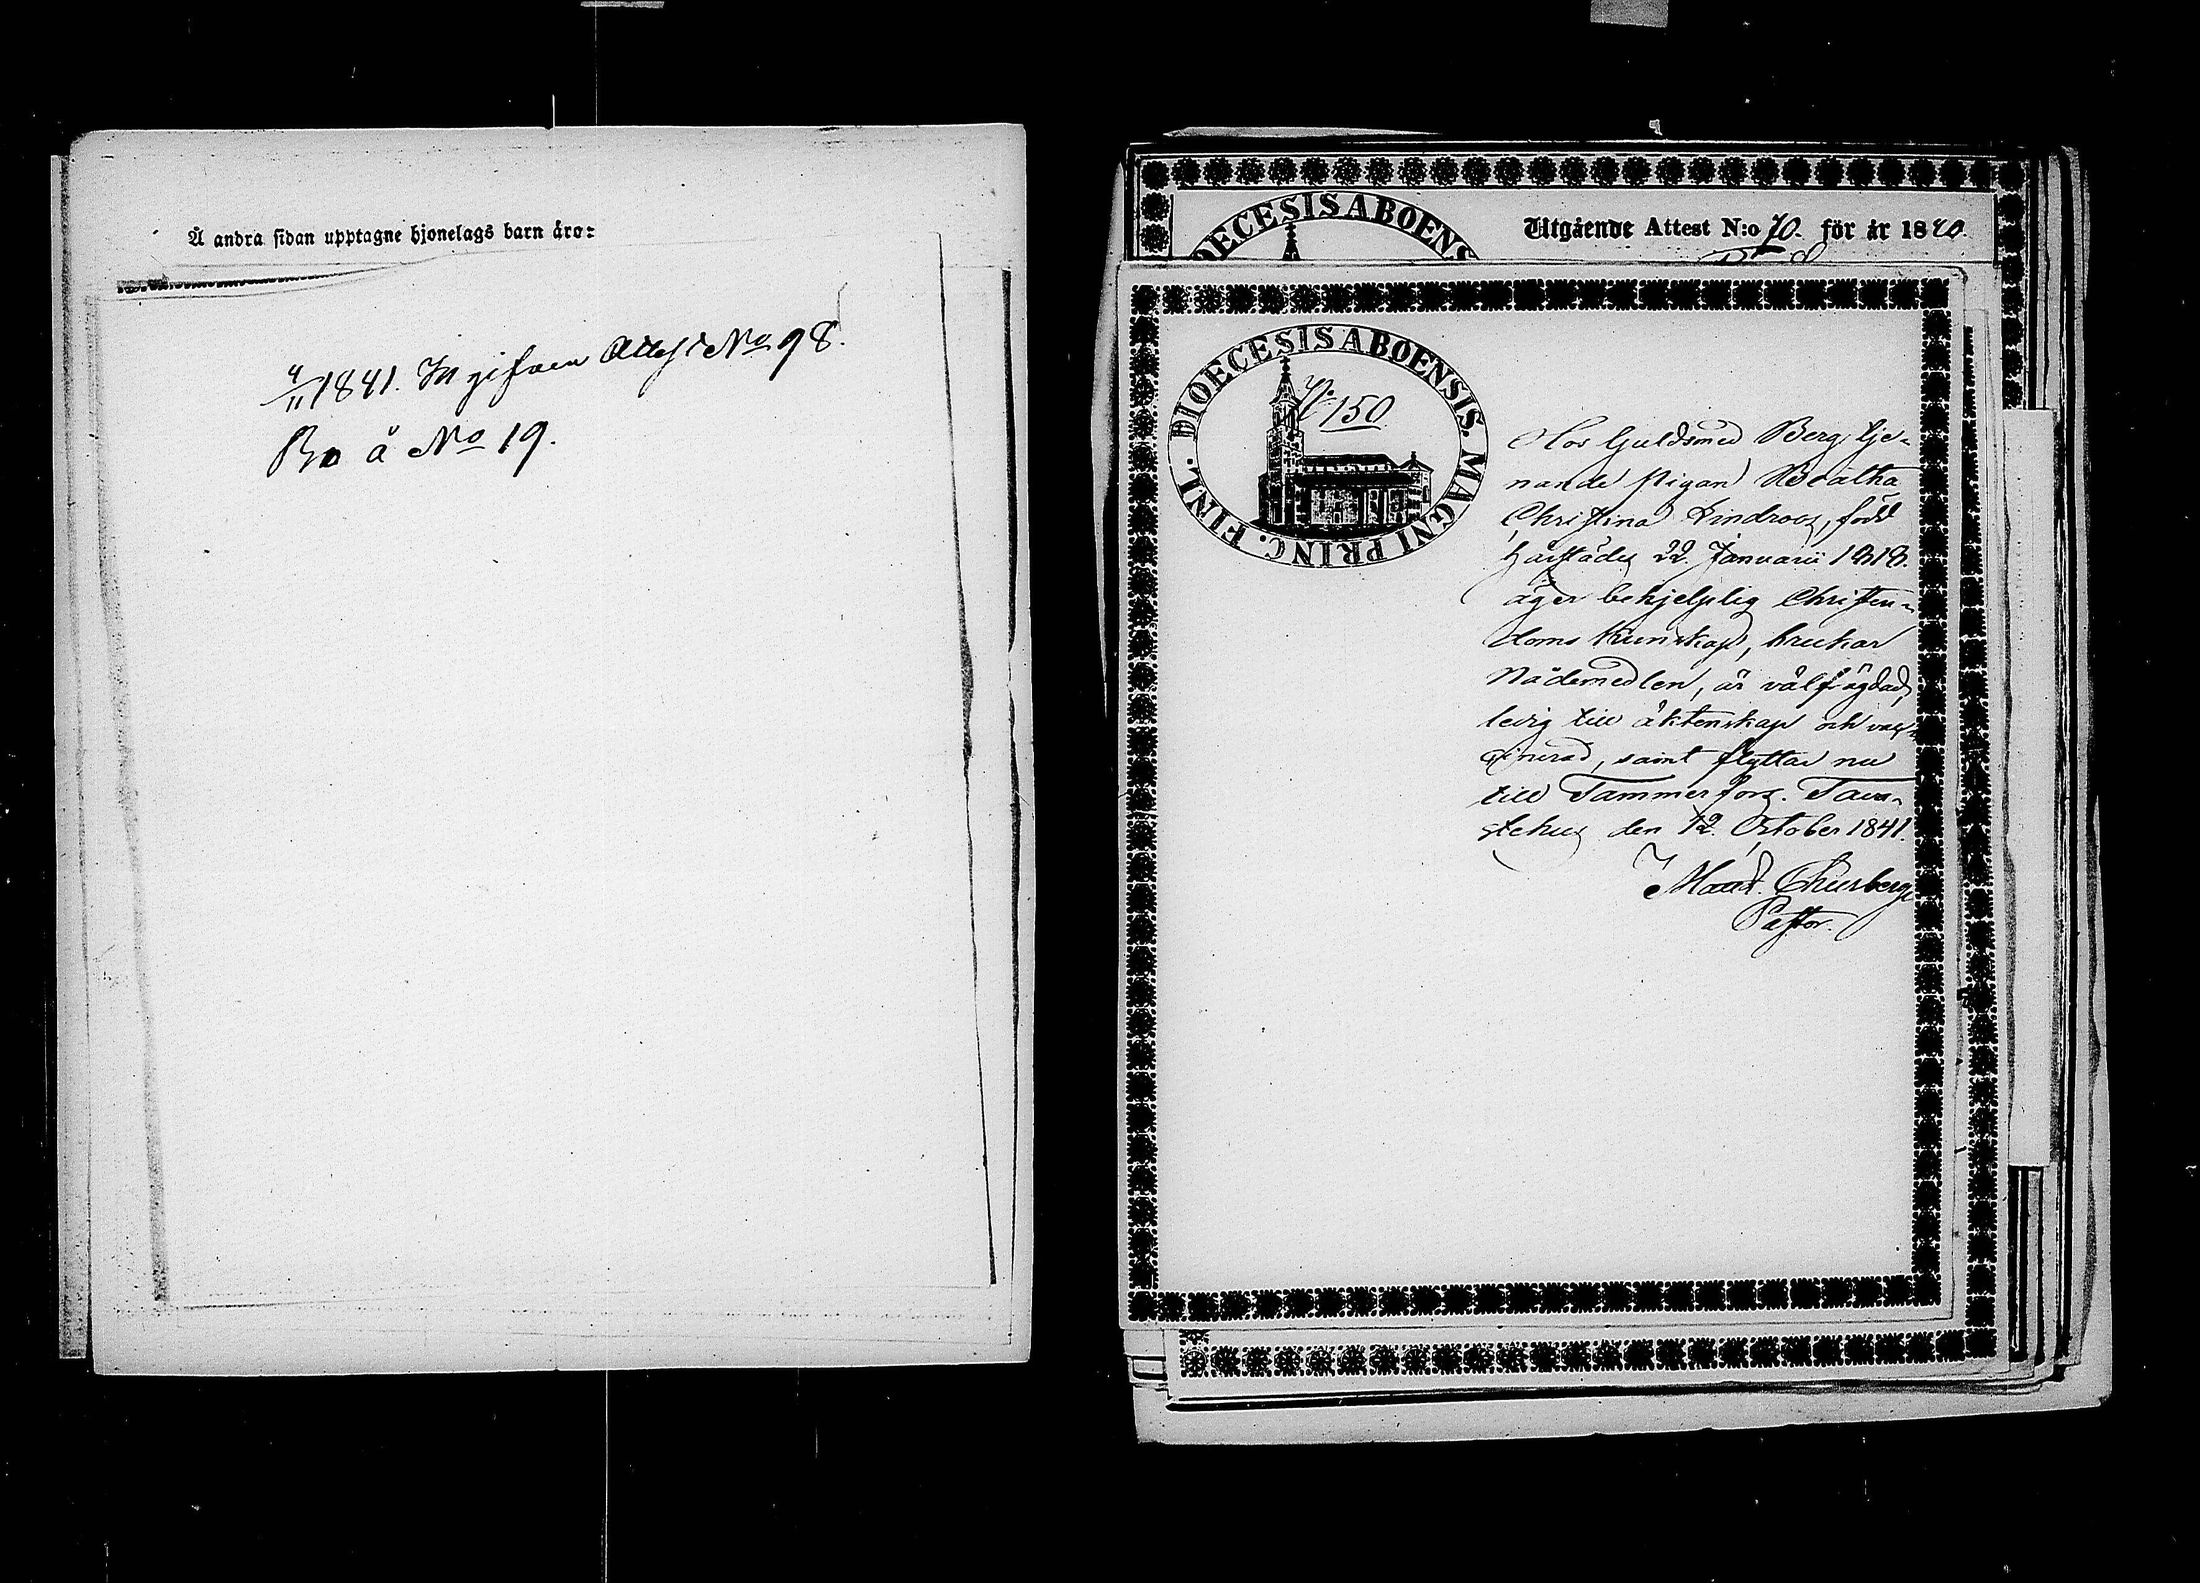 Å andra sidan upptagne hjonelags barn äro:
4/11 1841. Ingifven Attest No 98.
Bo å No 19.
DIOECESIS ABOENS
Utgående Attest N:o 70. för år 1840.
DIOECESIS ABOENSIS. MAGNI PRINC. FINL.
No 150
Hos Guldsmed Berg tje-
nande pigan Beatha
Christina Lindroos, född
härstädes 22 Januarii 1818.
äger behjelplig Christen-
doms kunskap, brukar
Nådemedlen, är välfrägdad,
ledig till äktenskap och vac-
cinerad, samt flyttar nu
till Tammerfors. Tava-
stehus den 12. October 1841.
Thurberg
Pastor.